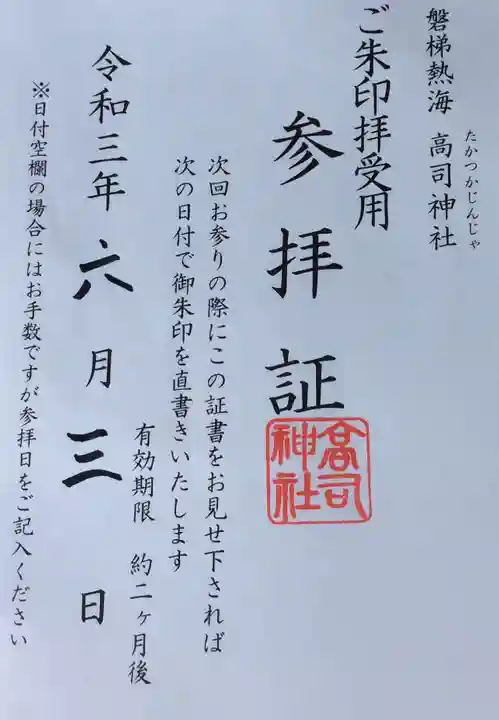 磐梯熱海 高司神社
たかつかじんじゃ
ご朱印拝受用
参拝証
高司神社
次回お参りの際にこの証書をお見せ下されば
次の日付で御朱印を直書きいたします
有効期限 約二ヶ月後
令和三年 六月 三日
※日付空欄の場合にはお手数ですが参拝日をご記入ください